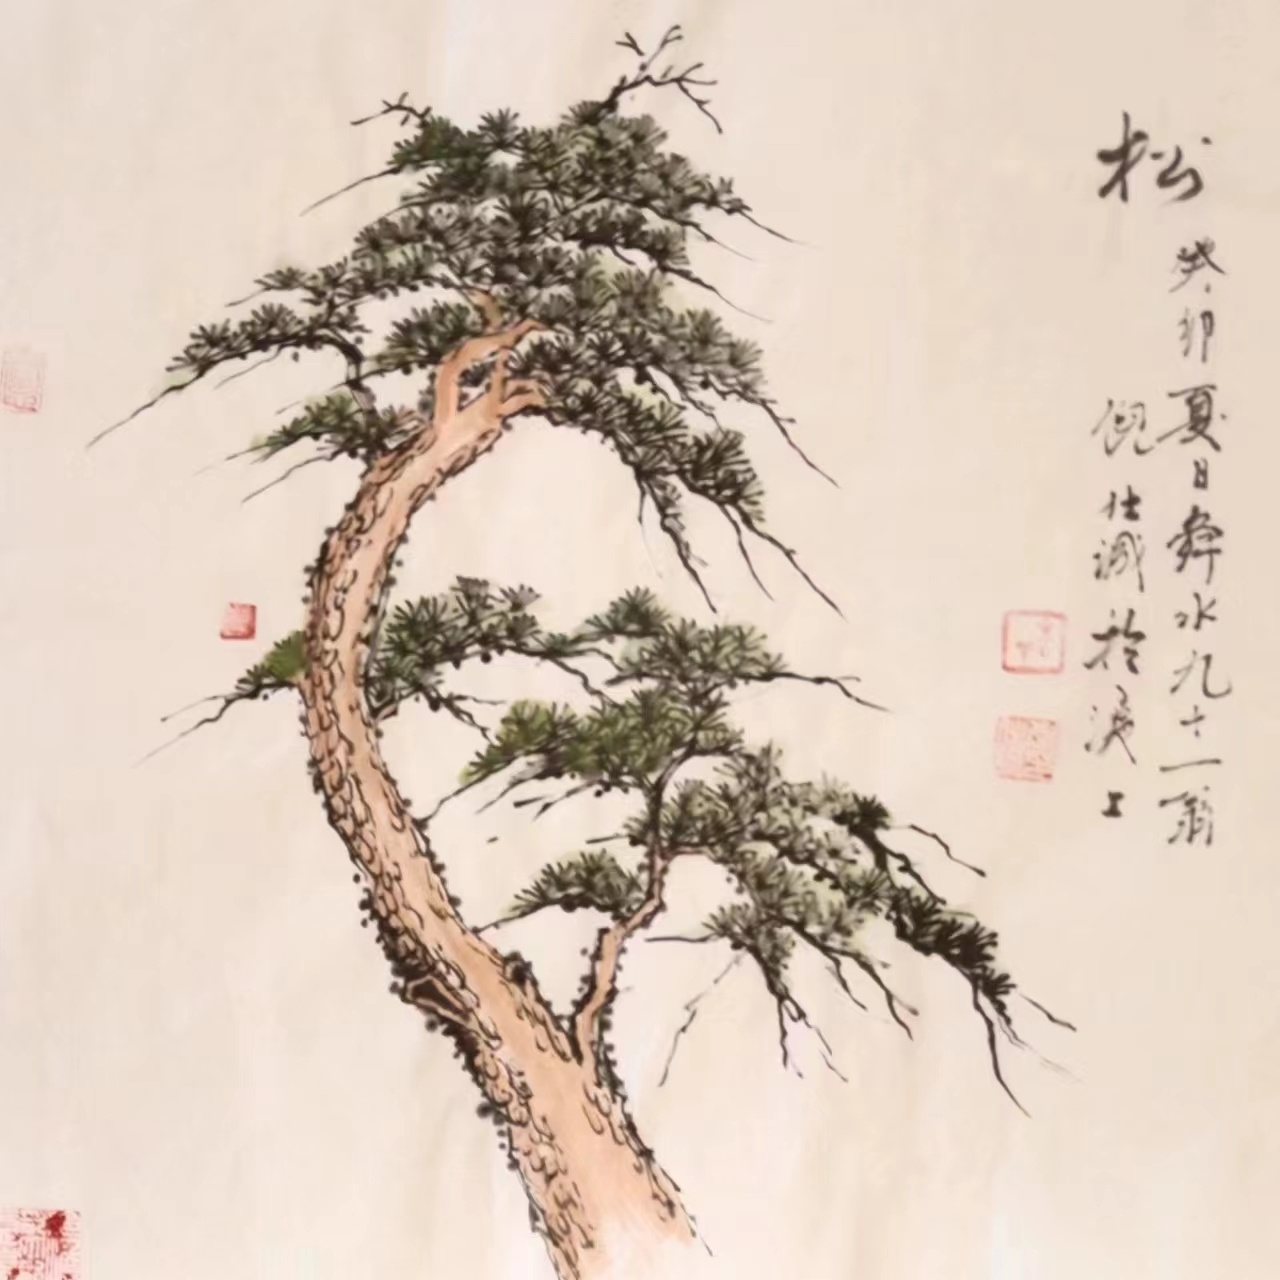 松
癸卯夏日舜水九十一翁
倪仕诚於溪上